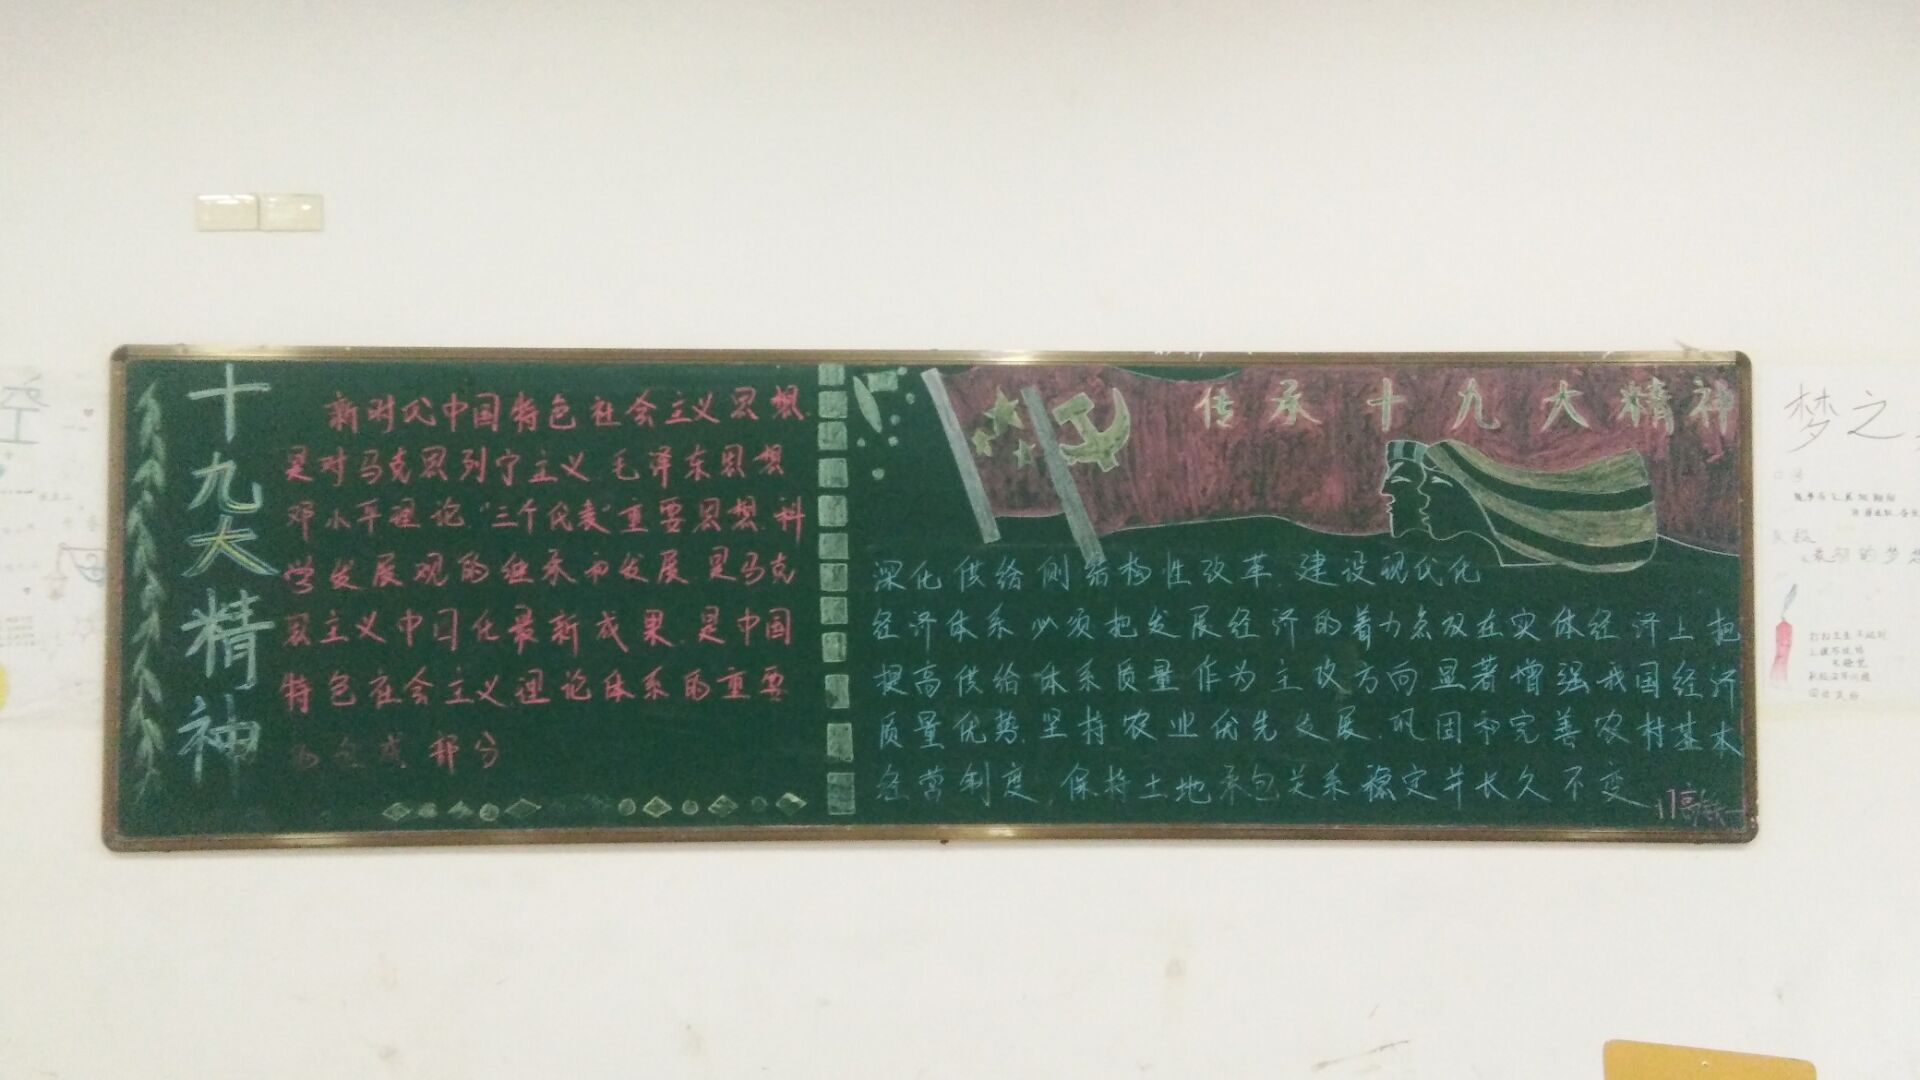 十九大精神
新时代中国特色社会主义思想.
是对马克思列宁主义.毛泽东思想
邓小平理论."三个代表"重要思想.科
学发展观的继承和发展.是马克
思主义中国化最新成果.是中国
特色社会主义理论体系的重要
组成部分
传承十九大精神
深化供给侧结构性改革.建设现代化
经济体系必须把发展经济的着力点放在实体经济上把
提高供给体系质量作为主攻方向显著增强我国经济
质量优势.坚持农业优先发展.巩固和完善农村基本
经营制度.保持土地承包关系稳定并长久不变
梦之